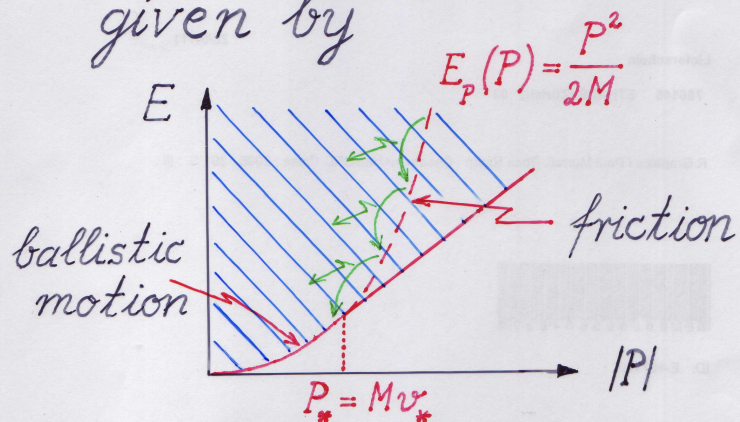 given by
E_P(P) = P²/2M
E
friction
ballistic
motion
|P|
P_* = Mv_*